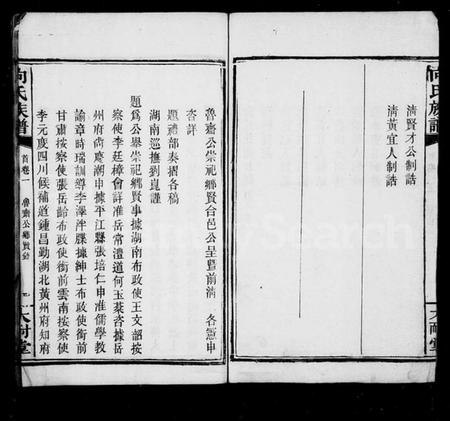 向氏族譜
清賢才公制誥
清黃宜人制誥
大耐堂
魯齋公崇祀鄉賢合邑公呈暨前清各憲申
咨詳
題禮部奏摺各稿
湖南巡撫劉崑謹
題為公舉崇祀鄉賢事據湖南布政使王文韶按
察使李廷樟會詳准岳常澧道何玉棻咨據岳
州府尚慶潮申據平江縣張培仁申准儒學教
諭章時瑞訓導李澤泮牒據紳士布政使銜前
甘肅按察使張岳齡布政使銜前雲南按察使
李元度四川候補道鍾昌勤湖北黃州府知府
向氏族譜
首卷一
魯齋公鄉賢錄
一
大耐堂